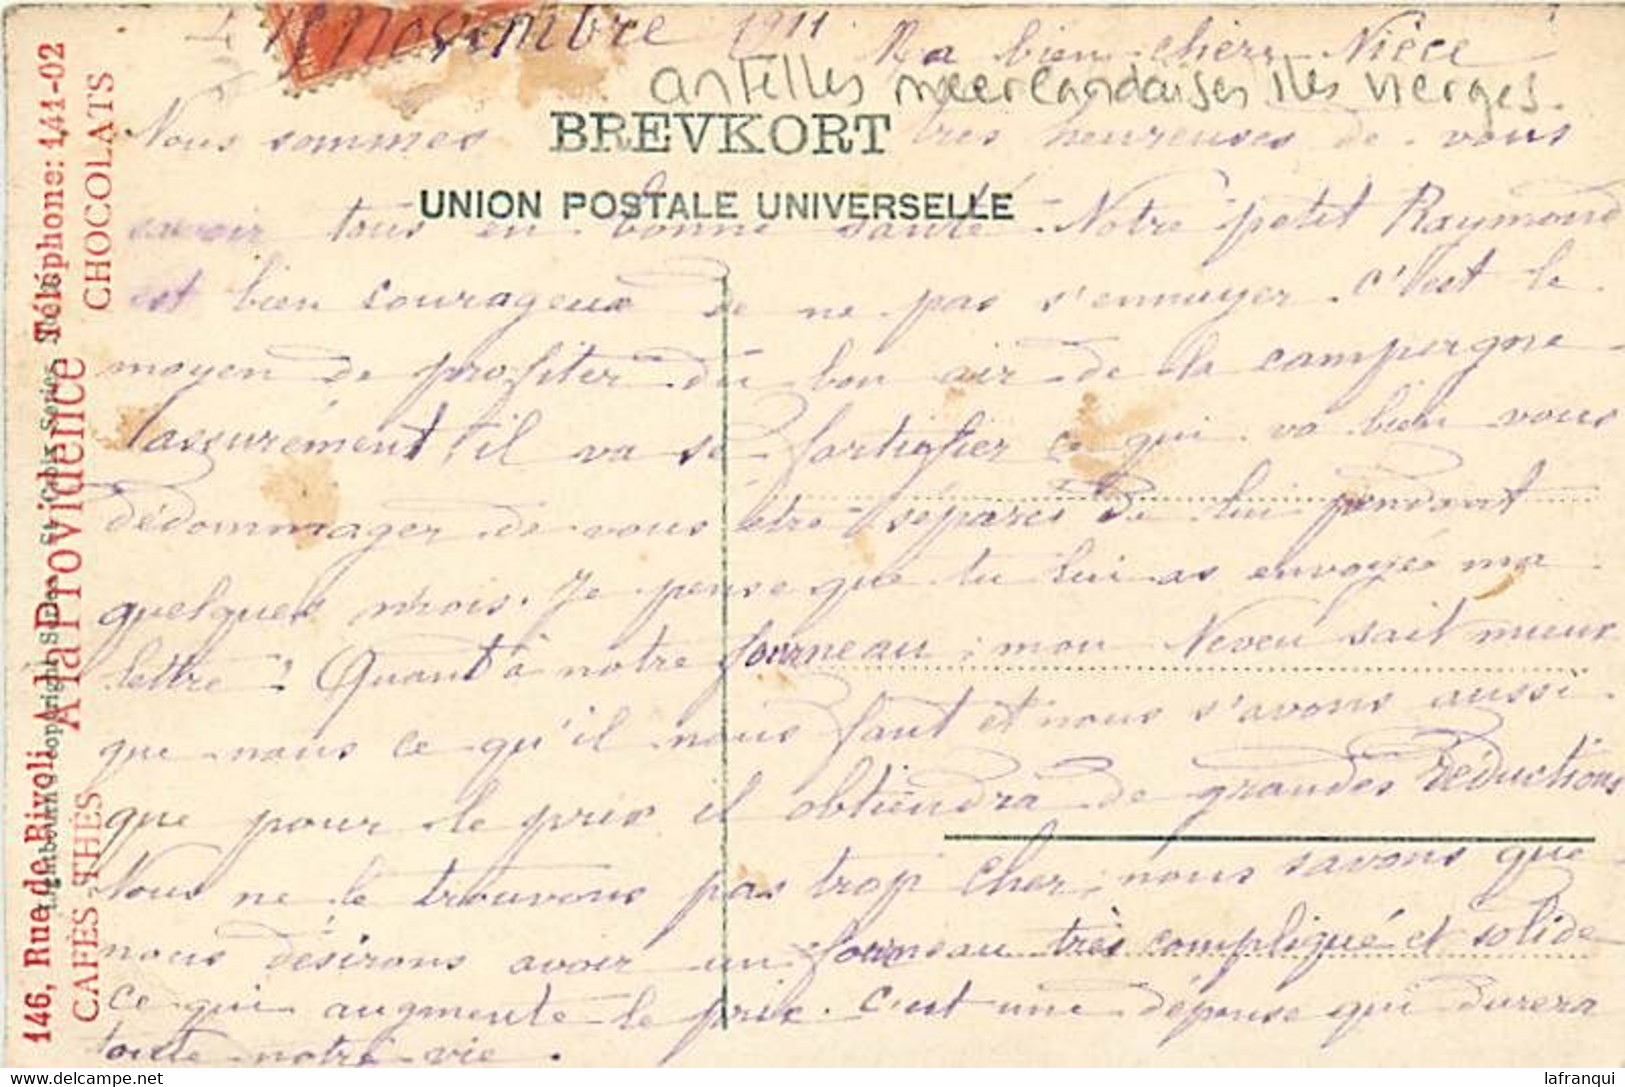 18 Novembre 1911 Ma bien chère Nièce
antelles neerlandaises iles vierges
Nous sommes très heureuses de vous
BREVKORT
UNION POSTALE UNIVERSELLE
savoir tous en bonne santé. Notre petit Raymond
est bien courageux de ne pas s'ennuyer. C'est le
moyen de profiter du bon air de la campergne
assurément, il va se fortifier ce qui va bien vous
dédommager de vous être séparés de lui pendant
quelques mois. Je pense que tu lui as envoyée ma
lettre? Quant à notre fourneau; mon Neveu sait mieux
que nous ce qu'il nous faut et nous s'avons aussi
que pour le prix il obtiendra de grandes Réductions
Nous ne le trouvons pas trop cher, nous savons que
nous désirons avoir un fourneau très compliqué et solide
ce qui augmente le prix. C'est une dépense qui durera
toute notre vie.
146, Rue de Rivoli A la Providence Téléphone: 141-02
CAFÉS-THÉS A la Providence CHOCOLATS
Lightbourn's Copyright Series
lafranqui